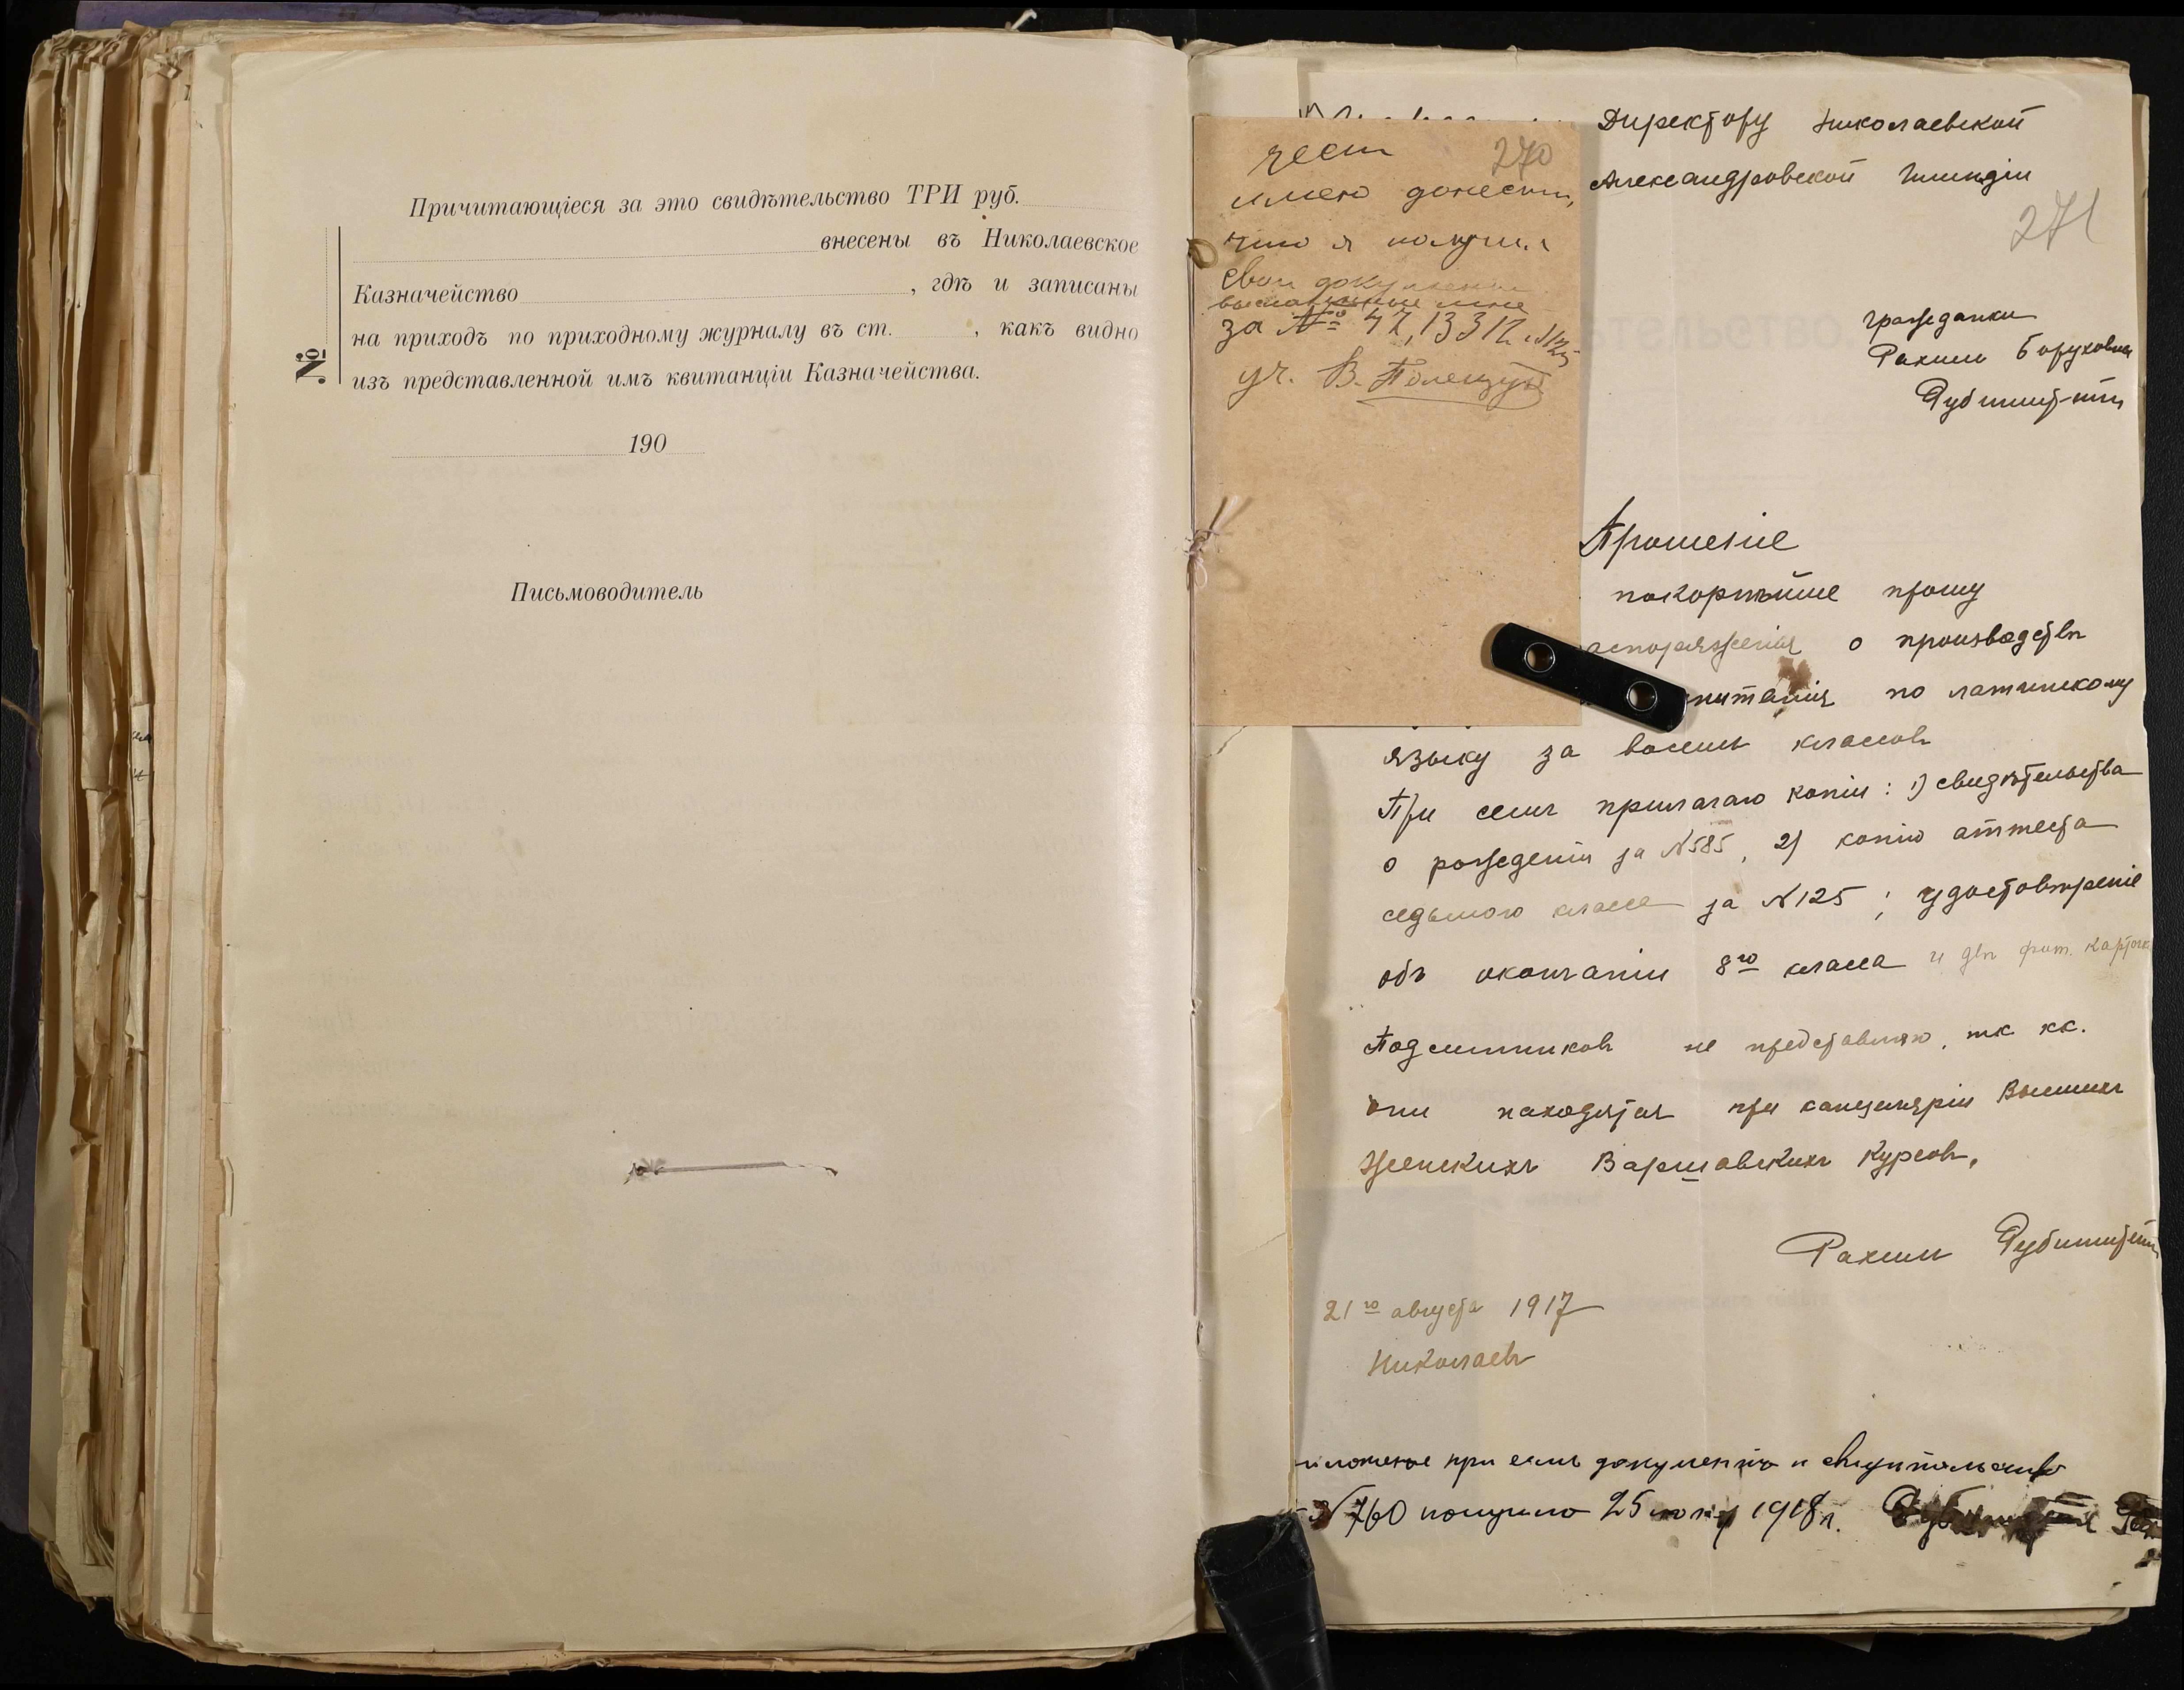 Причитающіеся за это свидѣтельство ТРИ руб.
внесены въ Николаевское
Казначейство , гдѣ и записаны
на приходъ по приходному журналу въ ст. , какъ видно
изъ представленной имъ квитанціи Казначейства.
№
190
Письмоводитель
270
честь
имею донести,
что я получил
свои документы
высланные мне
за №
уч. В.
Директору Николаевской
Александровской Гимназіи
271
гражданки
Рахили Боруховны
Рубинштейн
Прошеніе
покорнѣйше прошу
распоряженія о производствѣ
испытанія по латинскому
языку за восемь классовъ
При семъ прилагаю копіи: 1) свидѣтельства
о рожденіи за №585, 2) копію аттеста
седьмого класса за №125; удостовѣреніе
объ окончаніи 8го класса и двѣ фот. карточк
Подлинниковъ не представляю, тк кк.
они находятся при канцеляріи Высшихъ
Женскихъ Варшавскихъ Курсовъ,
Рахиль Рубинштейн
21го августа 1917
Николаевъ
при семъ документы и свидѣтельство
№760 получила 25 1918 г. Рубинштейн